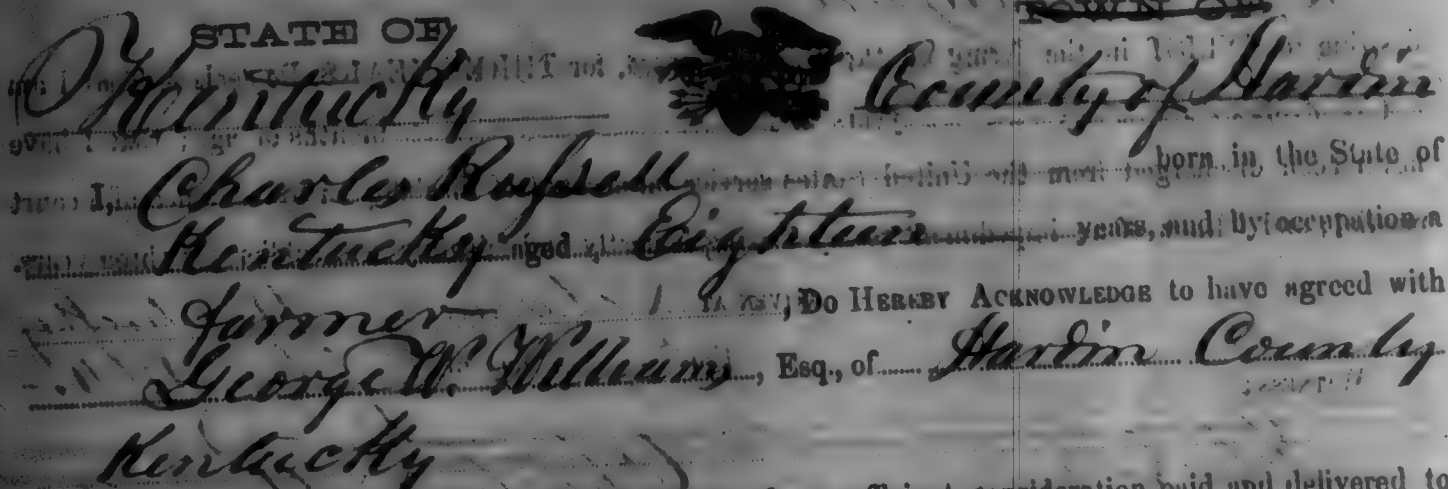 STATE OF TOWN OF
Kentucky County of Hardin
I, Charles Russell born in the State of
Kentucky aged Eighteen years, and by occupation a
farmer Do HEREBY ACKNOWLEDGE to have agreed with
George W. Williams, Esq., of Hardin County
Kentucky
consideration paid and delivered to